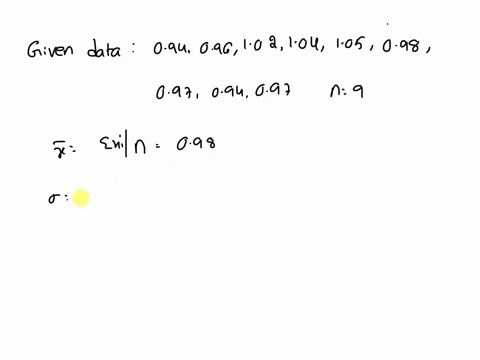 Given data : 0.94, 0.96, 1.02, 1.04, 1.05, 0.98,
0.97, 0.94, 0.97 n: 9
x̄ = Σxi | n = 0.98
σ :